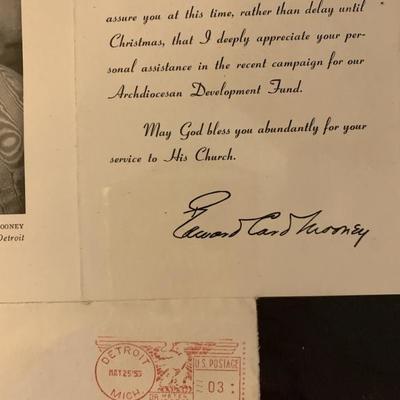 assure you at this time, rather than delay until
Christmas, that I deeply appreciate your per-
sonal assistance in the recent campaign for our
Archdiocesan Development Fund.
May God bless you abundantly for your
service to His Church.
Edward Card Mooney
OONEY
Detroit
DETROIT
MAY 25 '55
MICH.
U.S. POSTAGE
03